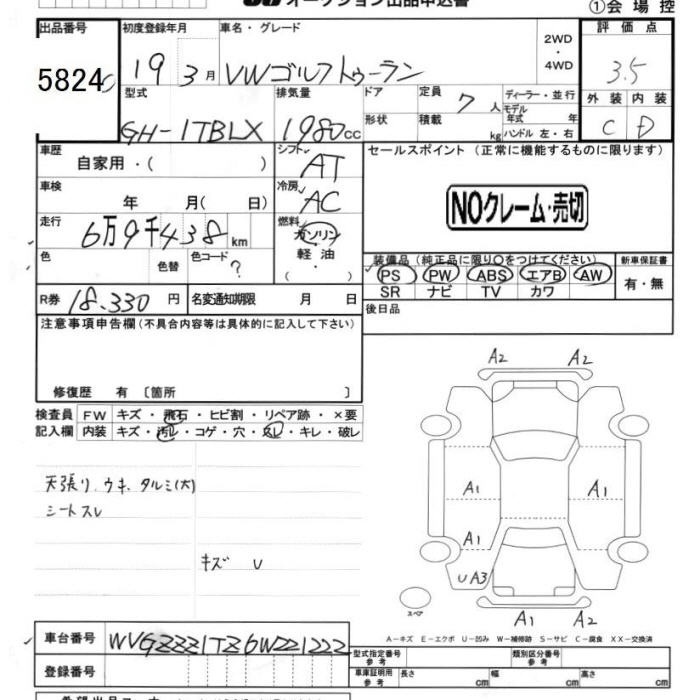 オークション出品申込書
①会場控
出品番号 初度登録年月 車名・グレード 2WD・4WD 評価点
5824 19 3月 VWゴルフトゥーラン 3.5
型式 排気量 ドア 定員 7人 ディーラー・並行 外装 内装
モデル年式 年
GH-1TBLX 1980cc 形状 積載 kg ハンドル 左・右 C D
車歴 シフト セールスポイント(正常に機能するものに限ります)
自家用・( ) AT
車検 冷房
年 月( 日) AC NOクレーム・売切
走行 燃料
6万9千438km ガソリン
色 色替 色コード ? 軽油 装備品(純正品に限り○をつけてください) 新車保証書
・( ) PS PW ABS エアB AW 有・無
R券 18.330円 名変通知期限 月 日 SR ナビ TV カワ
注意事項申告欄(不具合内容等は具体的に記入して下さい) 後日品
修復歴 有〔箇所 〕
検査員 FW キズ・飛石・ヒビ割・リペア跡・×要
記入欄 内装 キズ・汚レ・コゲ・穴・スレ・キレ・破レ
天張り ウキ、タルミ(大)
シートスレ
キズ U
A2 A2
A1 A1
A1
UA3
A1 A2
スペア
A-キズ E-エクボ U-凹み W-補修跡 S-サビ C-腐食 XX-交換済
車台番号 WVGZZZ1TZ6W221222 型式指定番号 参考 類別区分番号 参考
登録番号 車庫証明用 参考 長さ cm 幅 cm 高さ cm